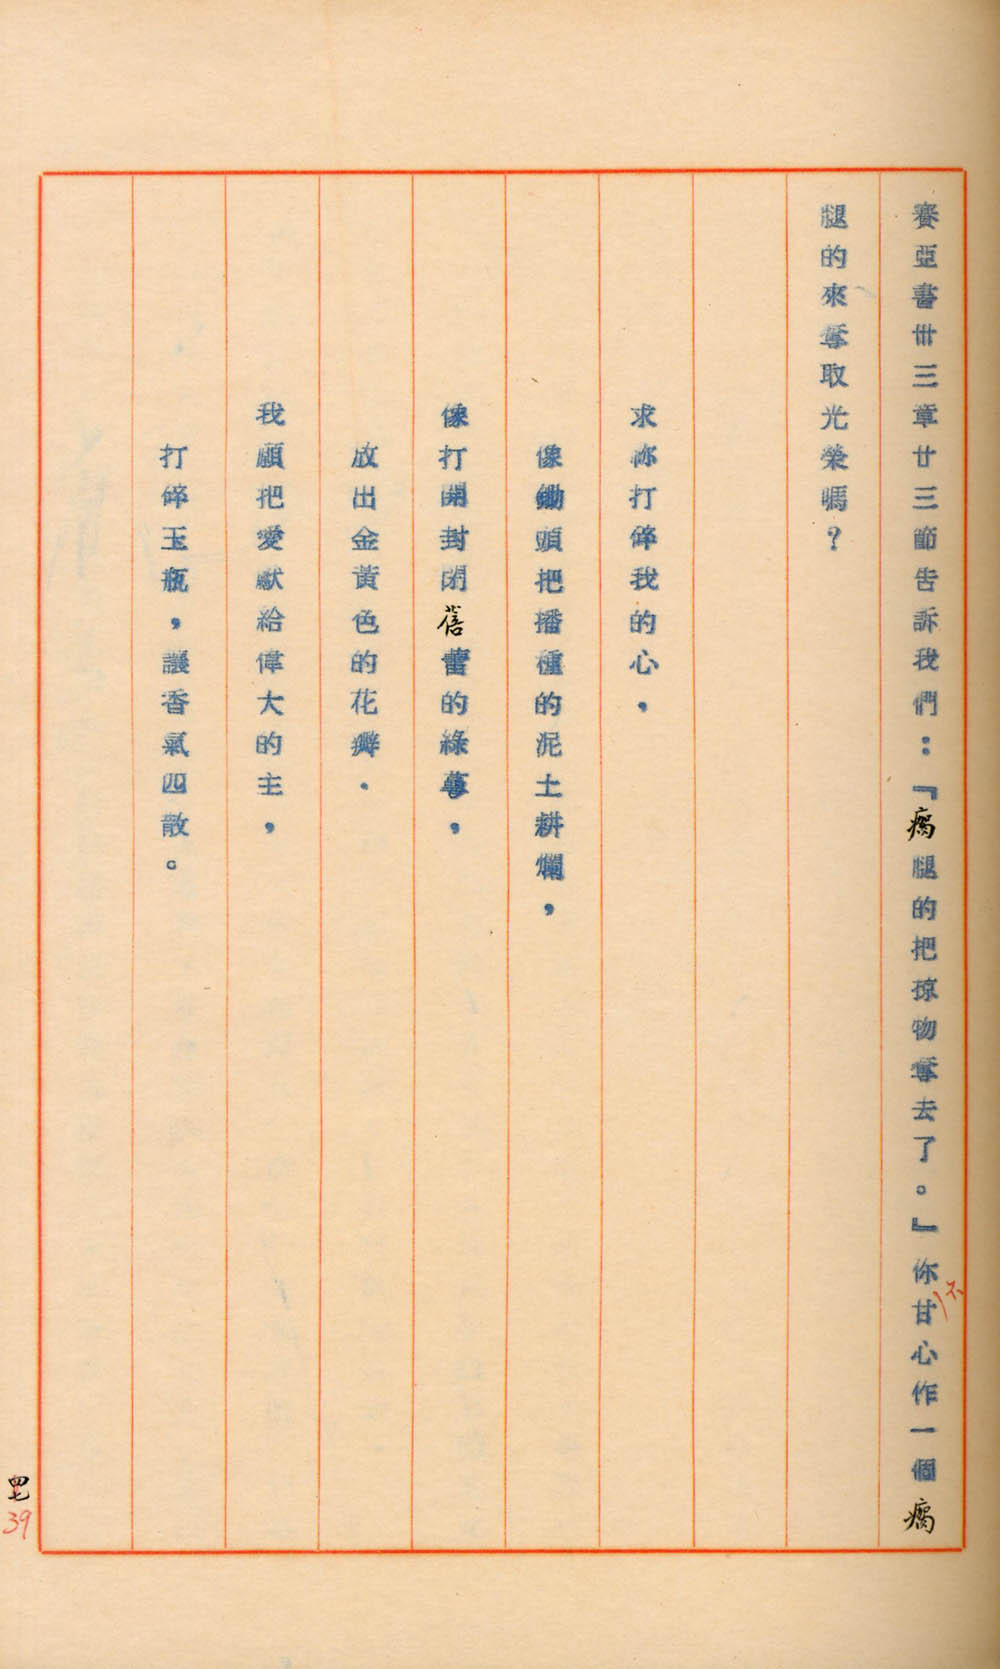 賽亞書卅三章廿三節告訴我們：『瘸腿的把掠物奪去了。』你不甘心作一個瘸
腿的來奪取光榮嗎？
求祢打碎我的心，
像鋤頭把播種的泥土耕爛，
像打開封閉蓓蕾的綠萼，
放出金黃色的花瓣．
我願把愛獻給偉大的主，
打碎玉瓶，讓香氣四散。
四七
39